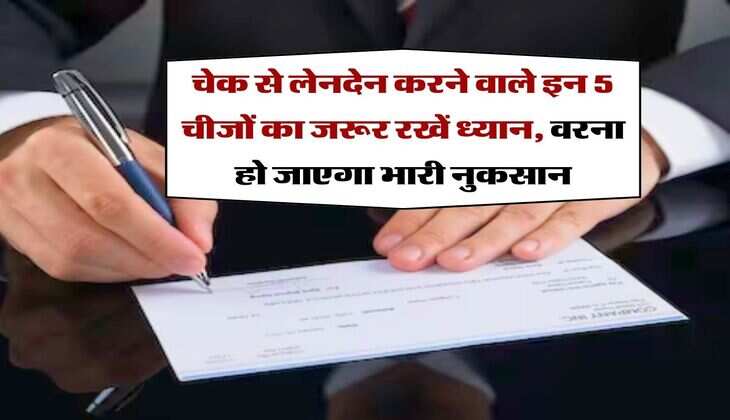 चेक से लेनदेन करने वाले इन 5
चीजों का जरूर रखें ध्यान, वरना
हो जाएगा भारी नुकसान
COMPANY INC.